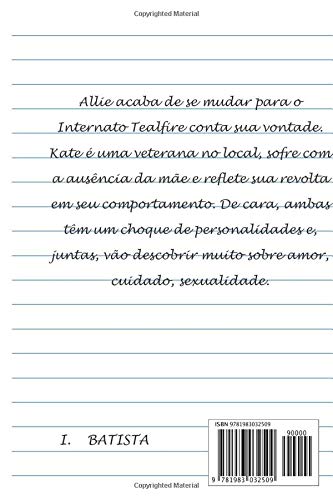 Copyrighted Material
Allie acaba de se mudar para o
Internato Tealfire conta sua vontade.
Kate é uma veterana no local, sofre com
a ausência da mãe e reflete sua revolta
em seu comportamento. De cara, ambas
têm um choque de personalidades e,
juntas, vão descobrir muito sobre amor,
cuidado, sexualidade.
I. BATISTA
ISBN 9781983032509
90000
9 781983 032509
Copyrighted Material